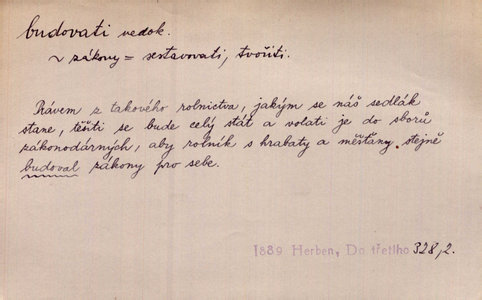 budovati vedok.
~ zákony = sestavovati, tvořiti.
Právem z takového rolnictva, jakým se náš sedlák
stane, těšiti se bude celý stát a volati je do sborů
zákonodárných, aby rolník s hrabaty a měšťany stejně
budoval zákony pro sebe.
1889 Herben, Do třetího 328,2.